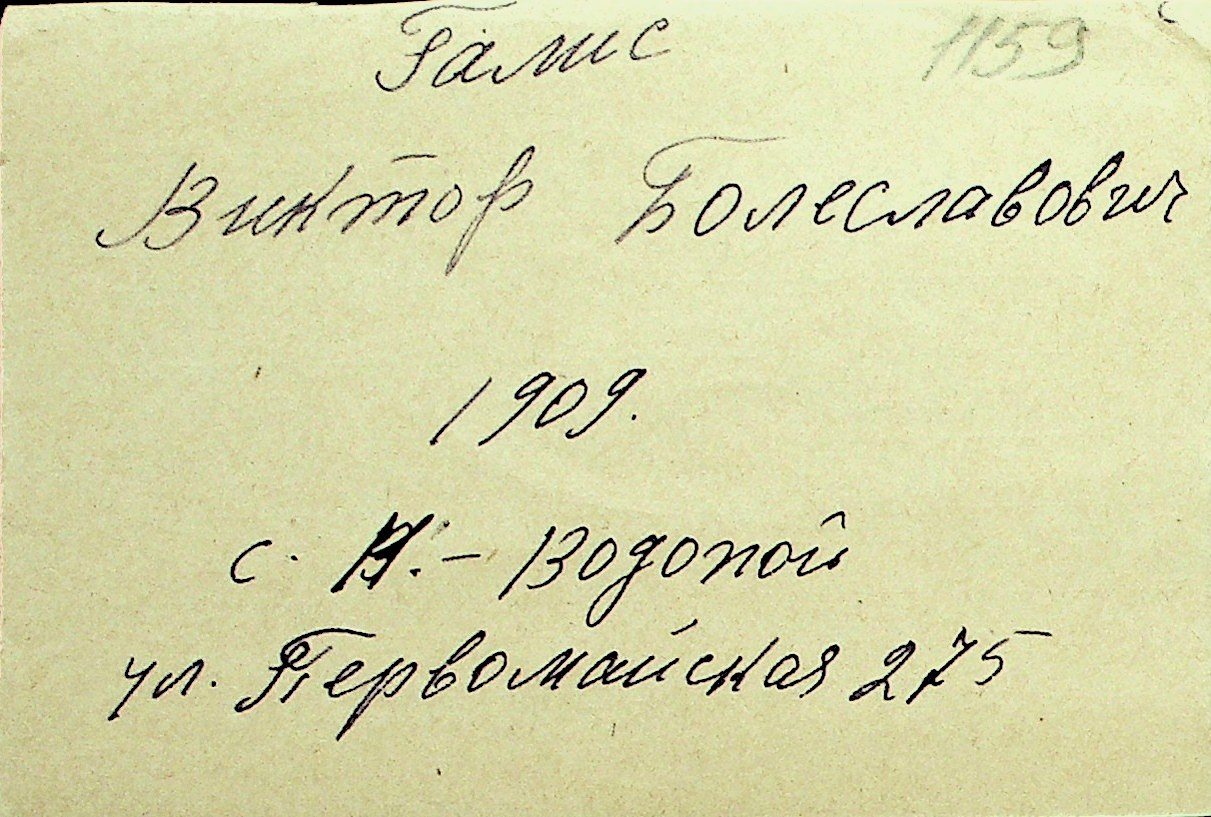 Галис 1159
Виктор Болеславович
1909.
с. - Водопой
ул. Первомайская 275